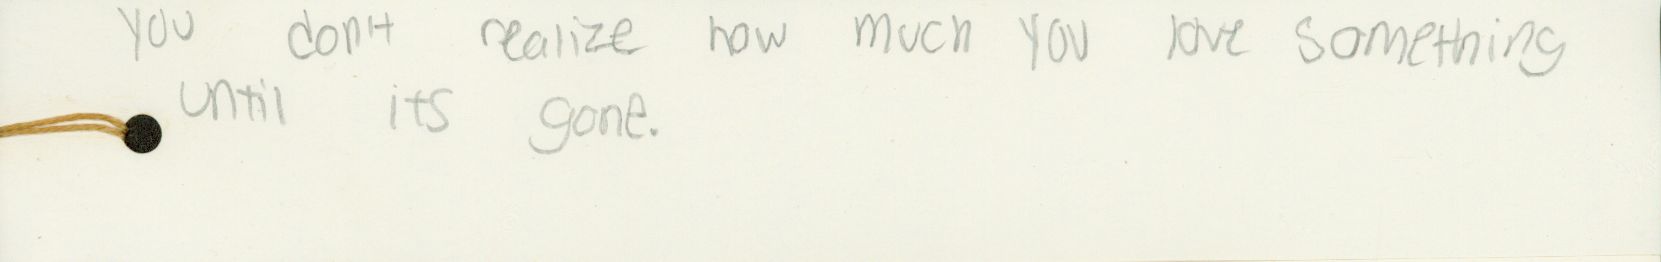 you don't realize how much you love something
until its gone.